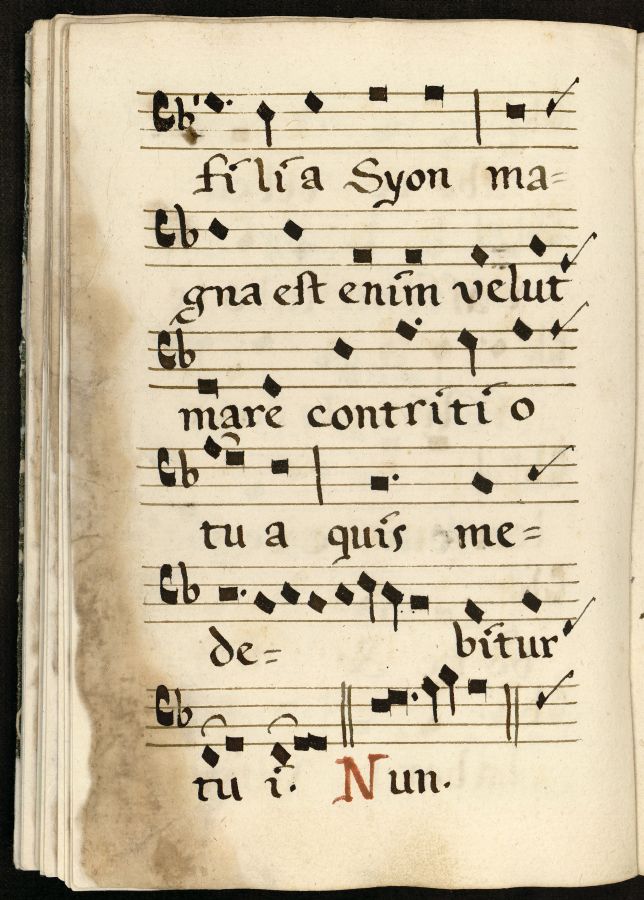 filia Syon ma=
gna est enim velut
mare contritio
tua quis me=
de= bitur
tui. Nun.